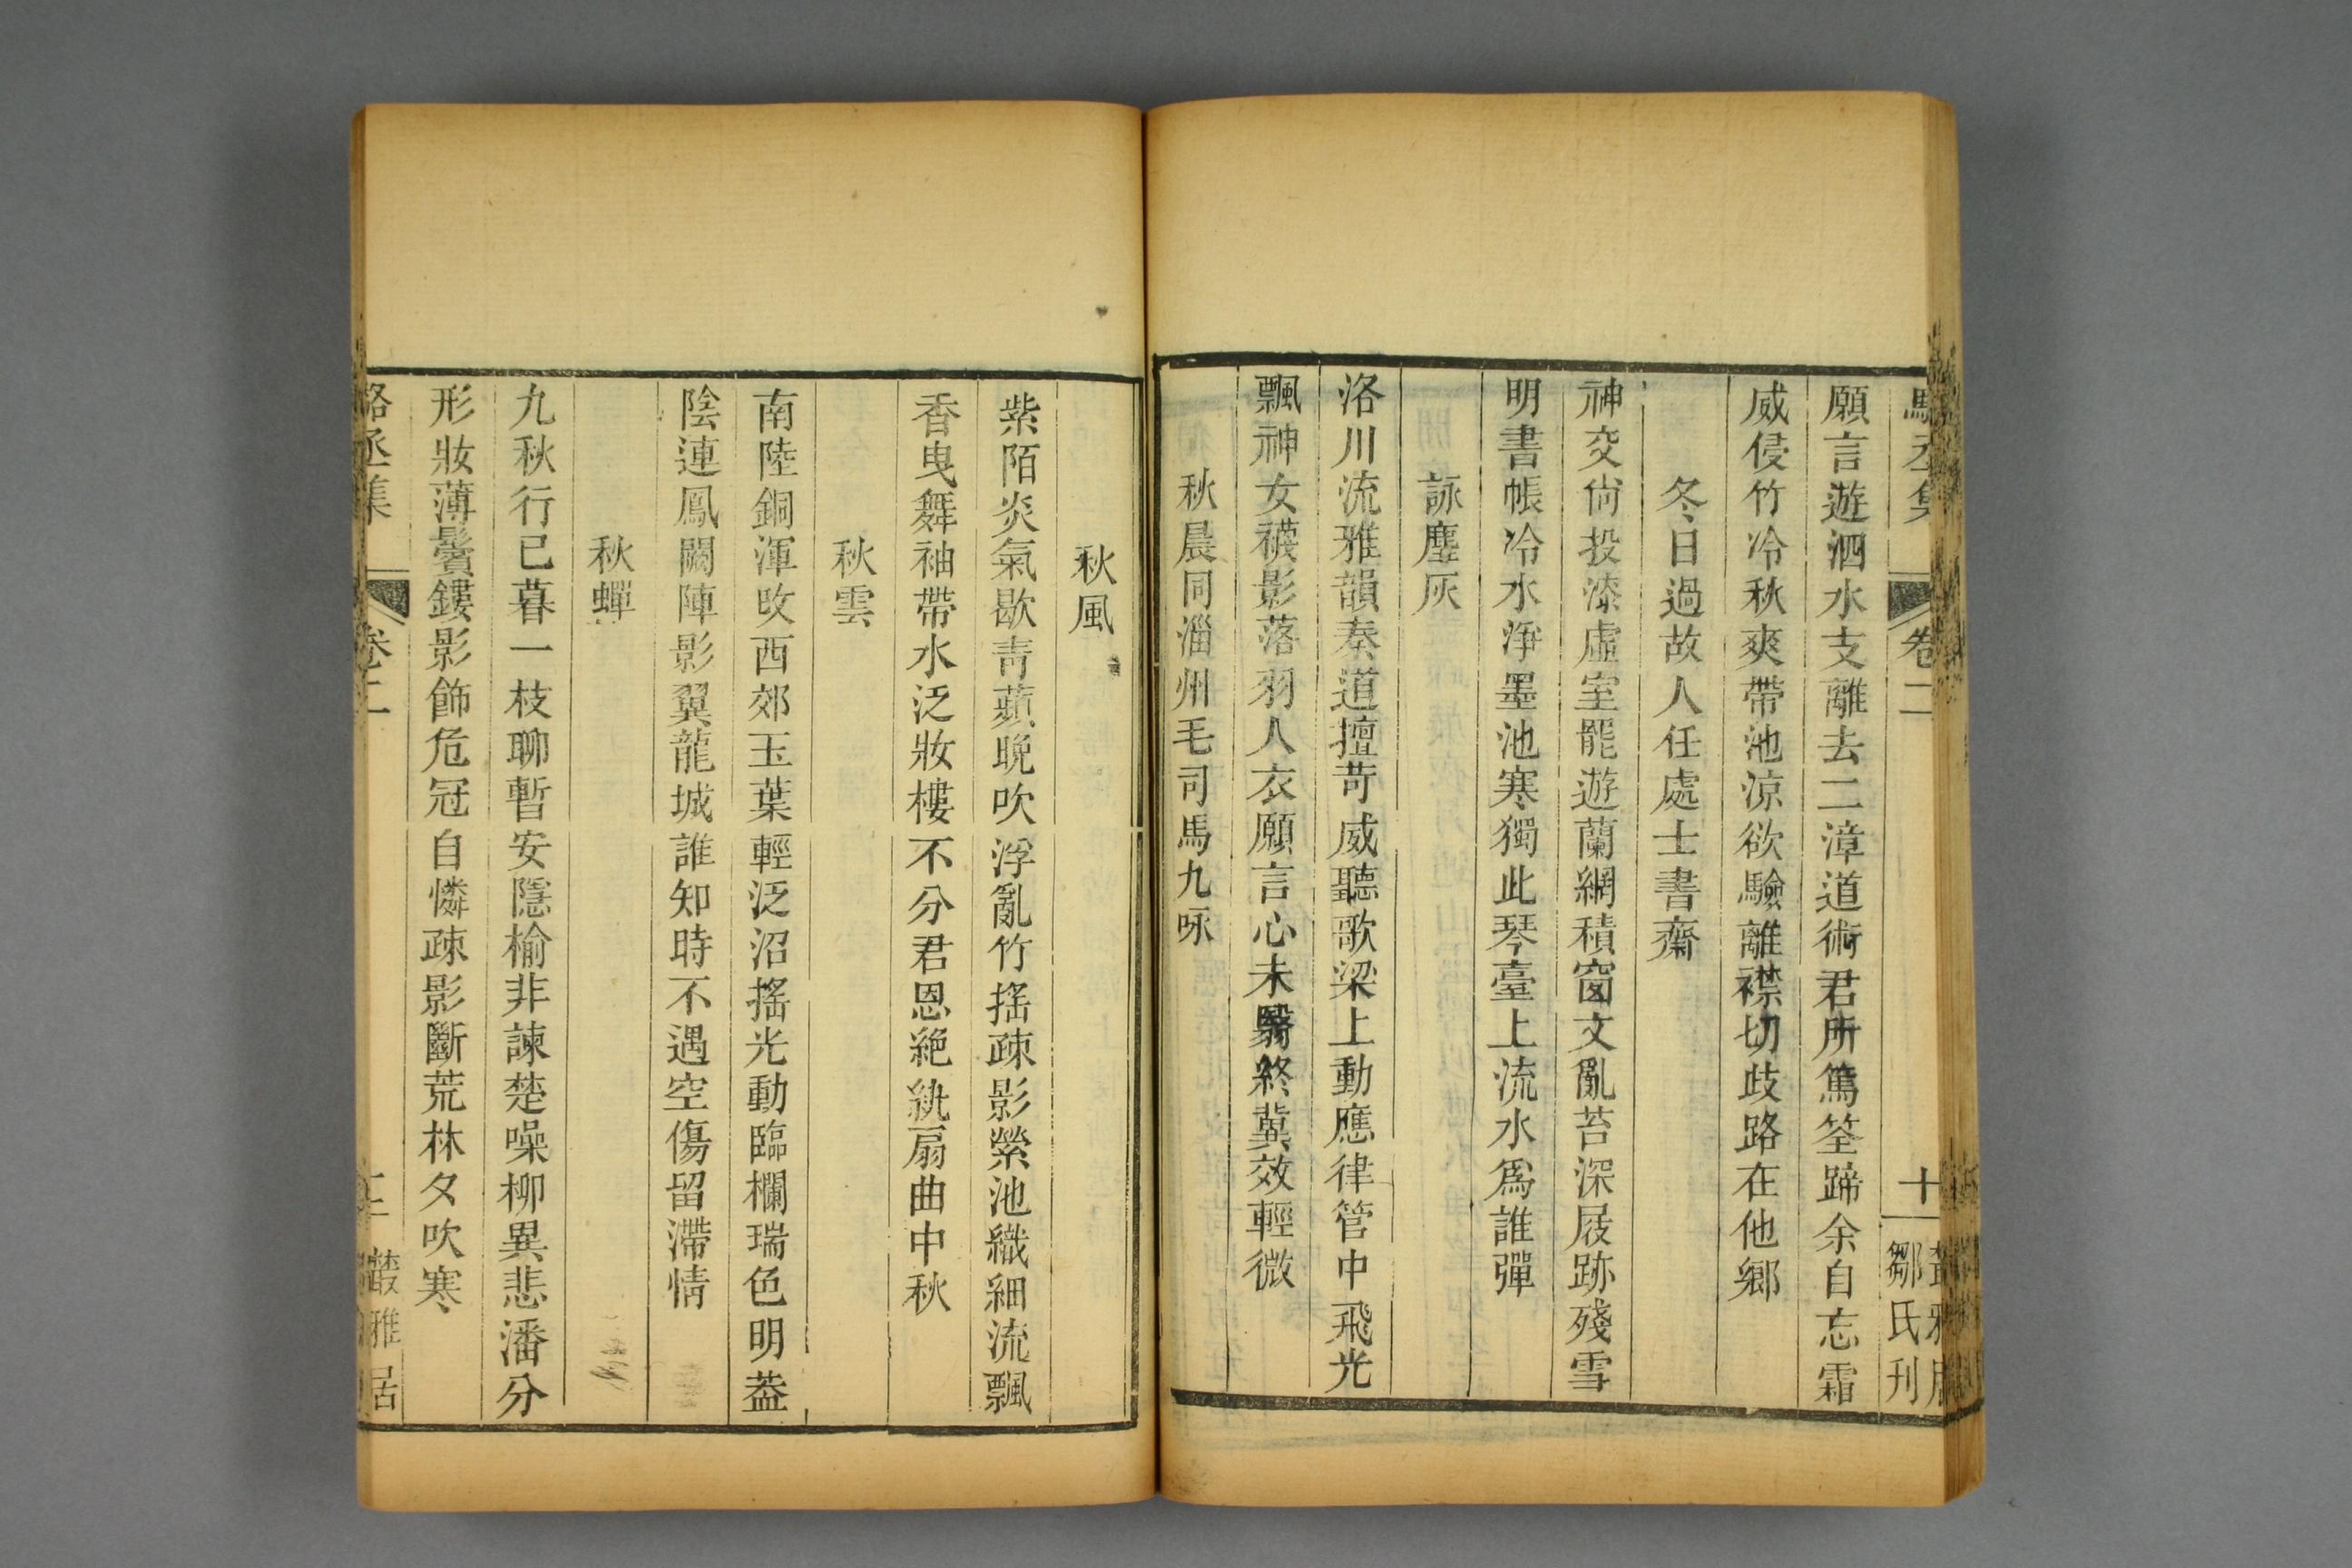 駱丞集 卷二 十 叢雅居 鄒氏刋
願言遊泗水支離去二漳道術君所篤筌蹄余自忘霜
威侵竹冷秋爽帶池涼欲驗離襟切歧路在他鄉
冬日過故人任處士書齋
神交尙投漆虛室罷遊蘭網積窗文亂苔深屐跡殘雪
明書帳冷水淨墨池寒獨此琴臺上流水爲誰彈
詠塵灰
洛川流雅韻秦道擅苛威聽歌梁上動應律管中飛光
飄神女襪影落羽人衣願言心未翳終冀效輕微
秋晨同淄州毛司馬九咏
秋風
紫陌炎氣歇靑蘋晚吹浮亂竹搖疎影縈池織細流飄
香曳舞袖帶水泛妝樓不分君恩絕紈扇曲中秋
秋雲
南陸銅渾改西郊玉葉輕泛沼搖光動臨欄瑞色明葢
陰連鳳闕陣影翼龍城誰知時不遇空傷留滯情
秋蟬
九秋行已暮一枝聊暫安隱榆非諫楚噪柳異悲潘分
形妝薄鬢鏤影飾危冠自憐疎影斷荒林夕吹寒
駱丞集 卷二 叢雅居